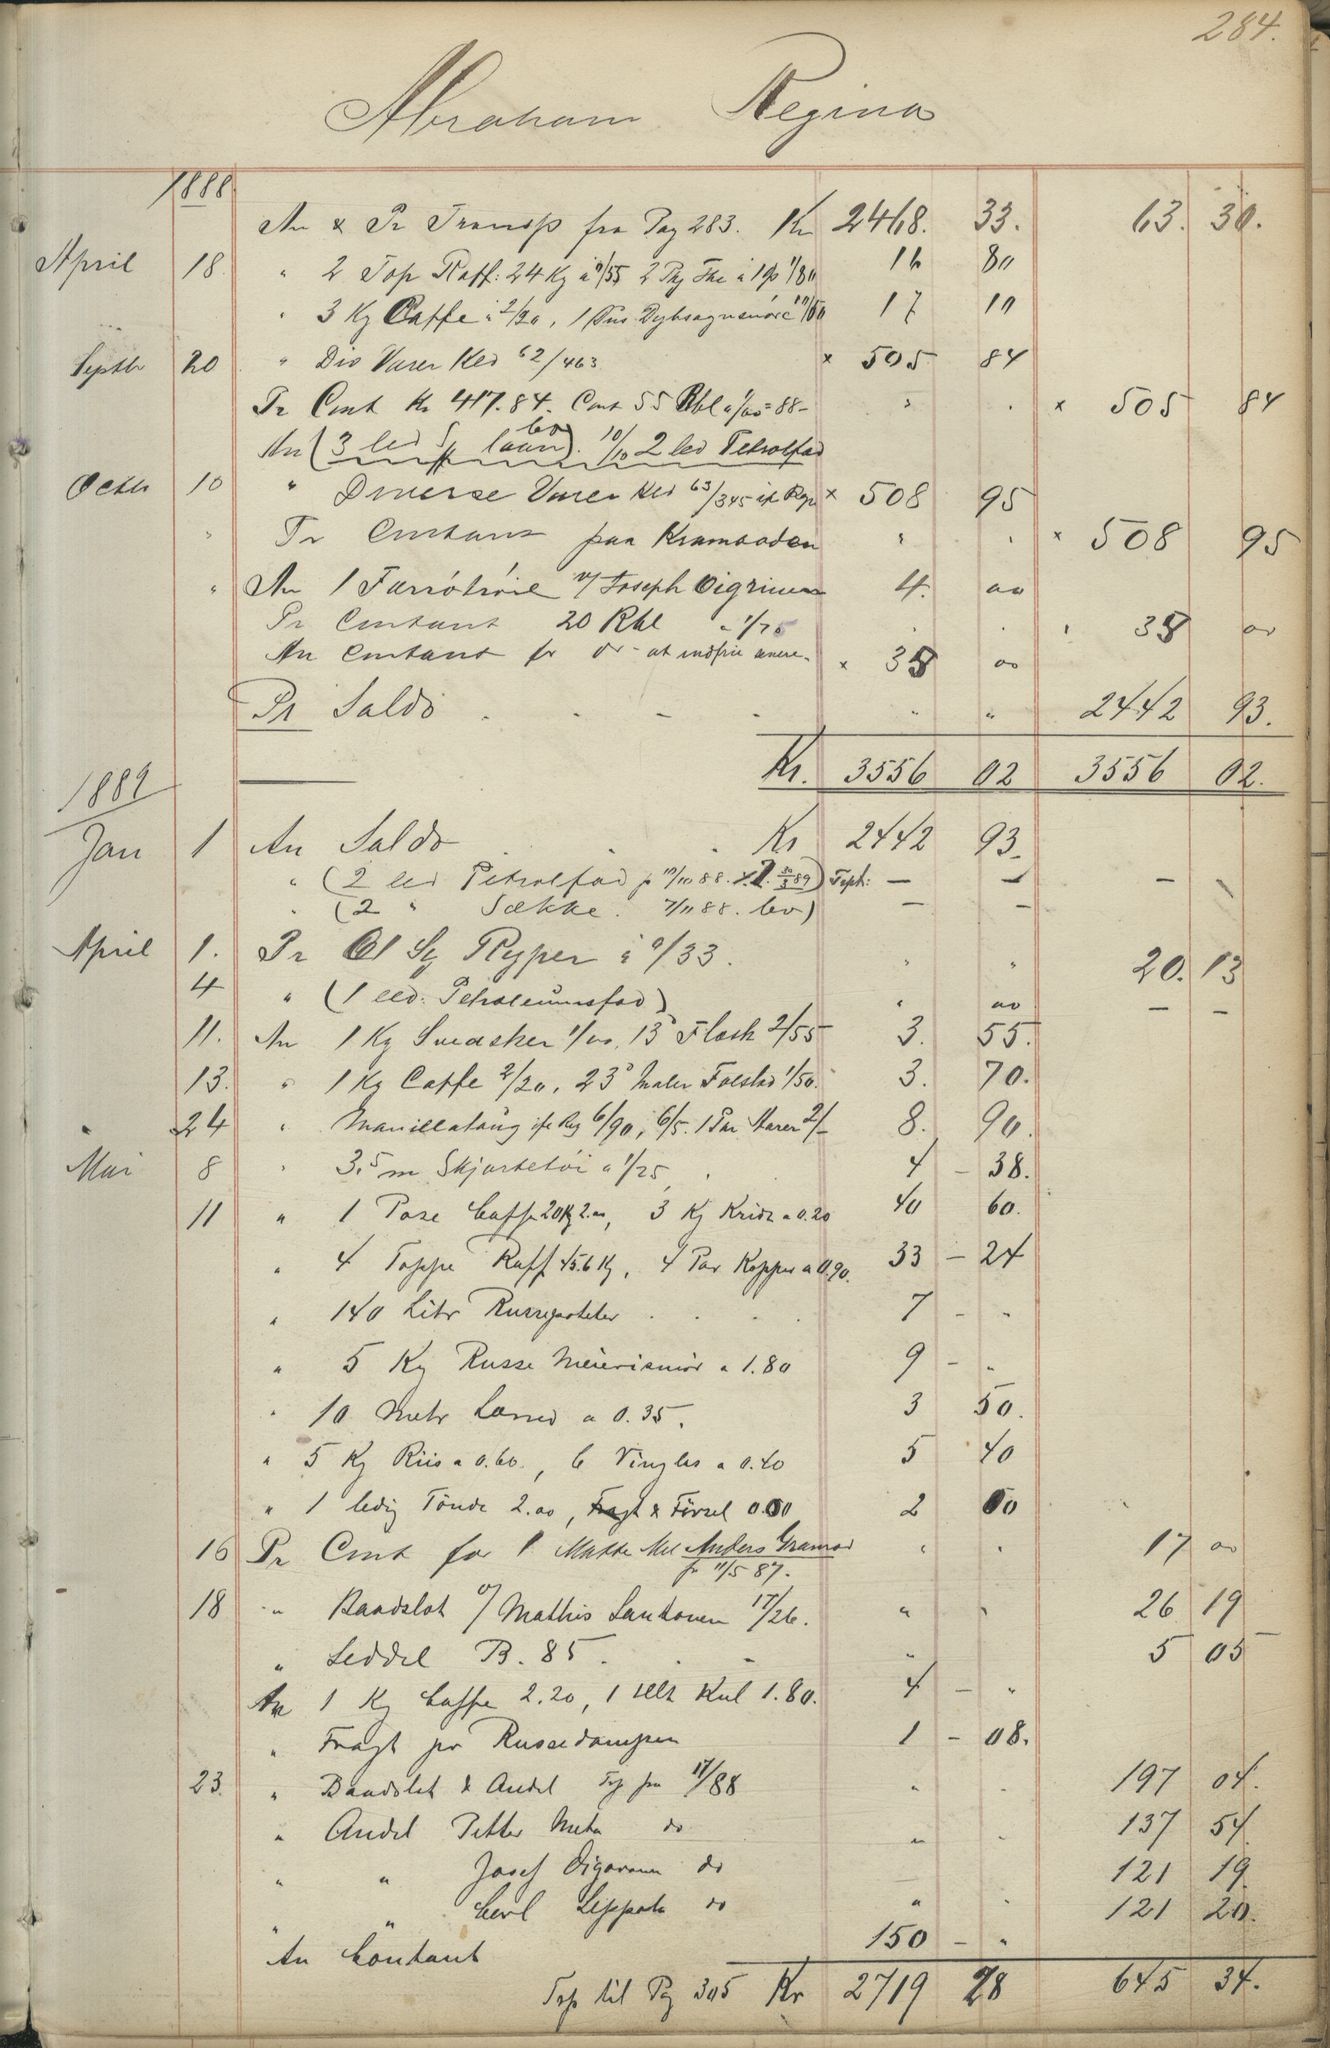 284.
Abraham Regina
1888
An & Pr Transp fra Pag 283. Kr 2468. 33. 63. 30.
April 18 " 2 Top Raff: 24 Kg à 0/55 2 Pk The à 1/80 16 80
" 3 Kg Caffe à 2/20, 1 10/50 17 10
Septbr 20 " Div Varer Kld 62/463 x 505 84
Pr Cont Kr 417.84. Cont 55 Rbl à 1/60 = 88- " . x 505 84
An (3 led laan) lev. 10/10 2 led Petrolfad
Octbr 10 " Diverse Varer Kld 63/345 if Regn x 508 95
" Pr Contant paa Kramboden " . x 508 95
" An 1 v/ Joseph 4. 00
Pr Contant 20 Rbl à 1/75 . . 38 00
An Contant for do - at indfrie x 38 00
Pr Saldo . . - - " " 2442 93.
Kr. 3556 02 3556 02.
1889
Jan 1 An Saldo . . . Kr 2442 93.
" (2 led Petrolfad p 10/10 88. 30/3 89) - - - -
" (2 " Sække. 7/11 88. lev) - -
April 1. Pr 61 Sg Ryper à 0/33. " " 20. 13
4 " (1 led. Petroleumsfad) " 00 - -
11. An 1 Kg Svedsker 1/00, 13 Flesk 2/55 3. 55.
13. " 1 Kg Caffe 2/20, 23 1/50. 3. 70.
24 " Manillataug if Reg 6/90, 6/5. 1 Par Aarer 2/- 8. 90.
Mai 8 " 3,5 m Skjortetöi à 1/25, . 4 - 38.
11 " 1 Pose Caffe 20 Kg 2.00, 3 Kg Krids a 0.20 40 60.
" 4 Toppe Raff 45.6 Kg, 4 Par Kopper a 0.90. 33 - 24
" 140 Litr Russepoteter . . . . 7 - -
" 5 Kg Russe Meierismör a 1.80 9 - "
" 10 Metr Lærred a 0.35. 3 50.
" 5 Kg Riis a 0.60, 6 Vinglas a 0.40 5 40
" 1 ledig Tönde 2.00, Fragt & Försel 0.00 2 00
16 Pr Cont for 1 Matte Mel Anders " . 17 00
fr 11/5 87.
18 " Baadslot v/ Mathis 17/26. " " 26 19
" Seddel B. 85 . . - " 5 05
An 1 Kg Caffe 2.20, 1 Hl Kul 1.80. 4 - "
" Fragt pr Russedampen 1 - 08.
23. " Baadslot & Andel Trp fra 17/88 " . 197 04.
" Andel Petter Meta do " . 137 54.
" " Josef do 121 19.
" " Carl Lippola do " . 121 20.
An Contant 150 - "
Trp til Pag 305 Kr 2719 28 645 34.